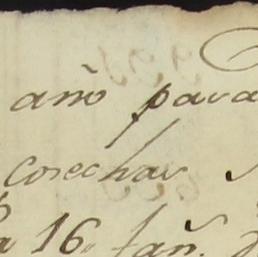 año para
cosechar
16. fañ.